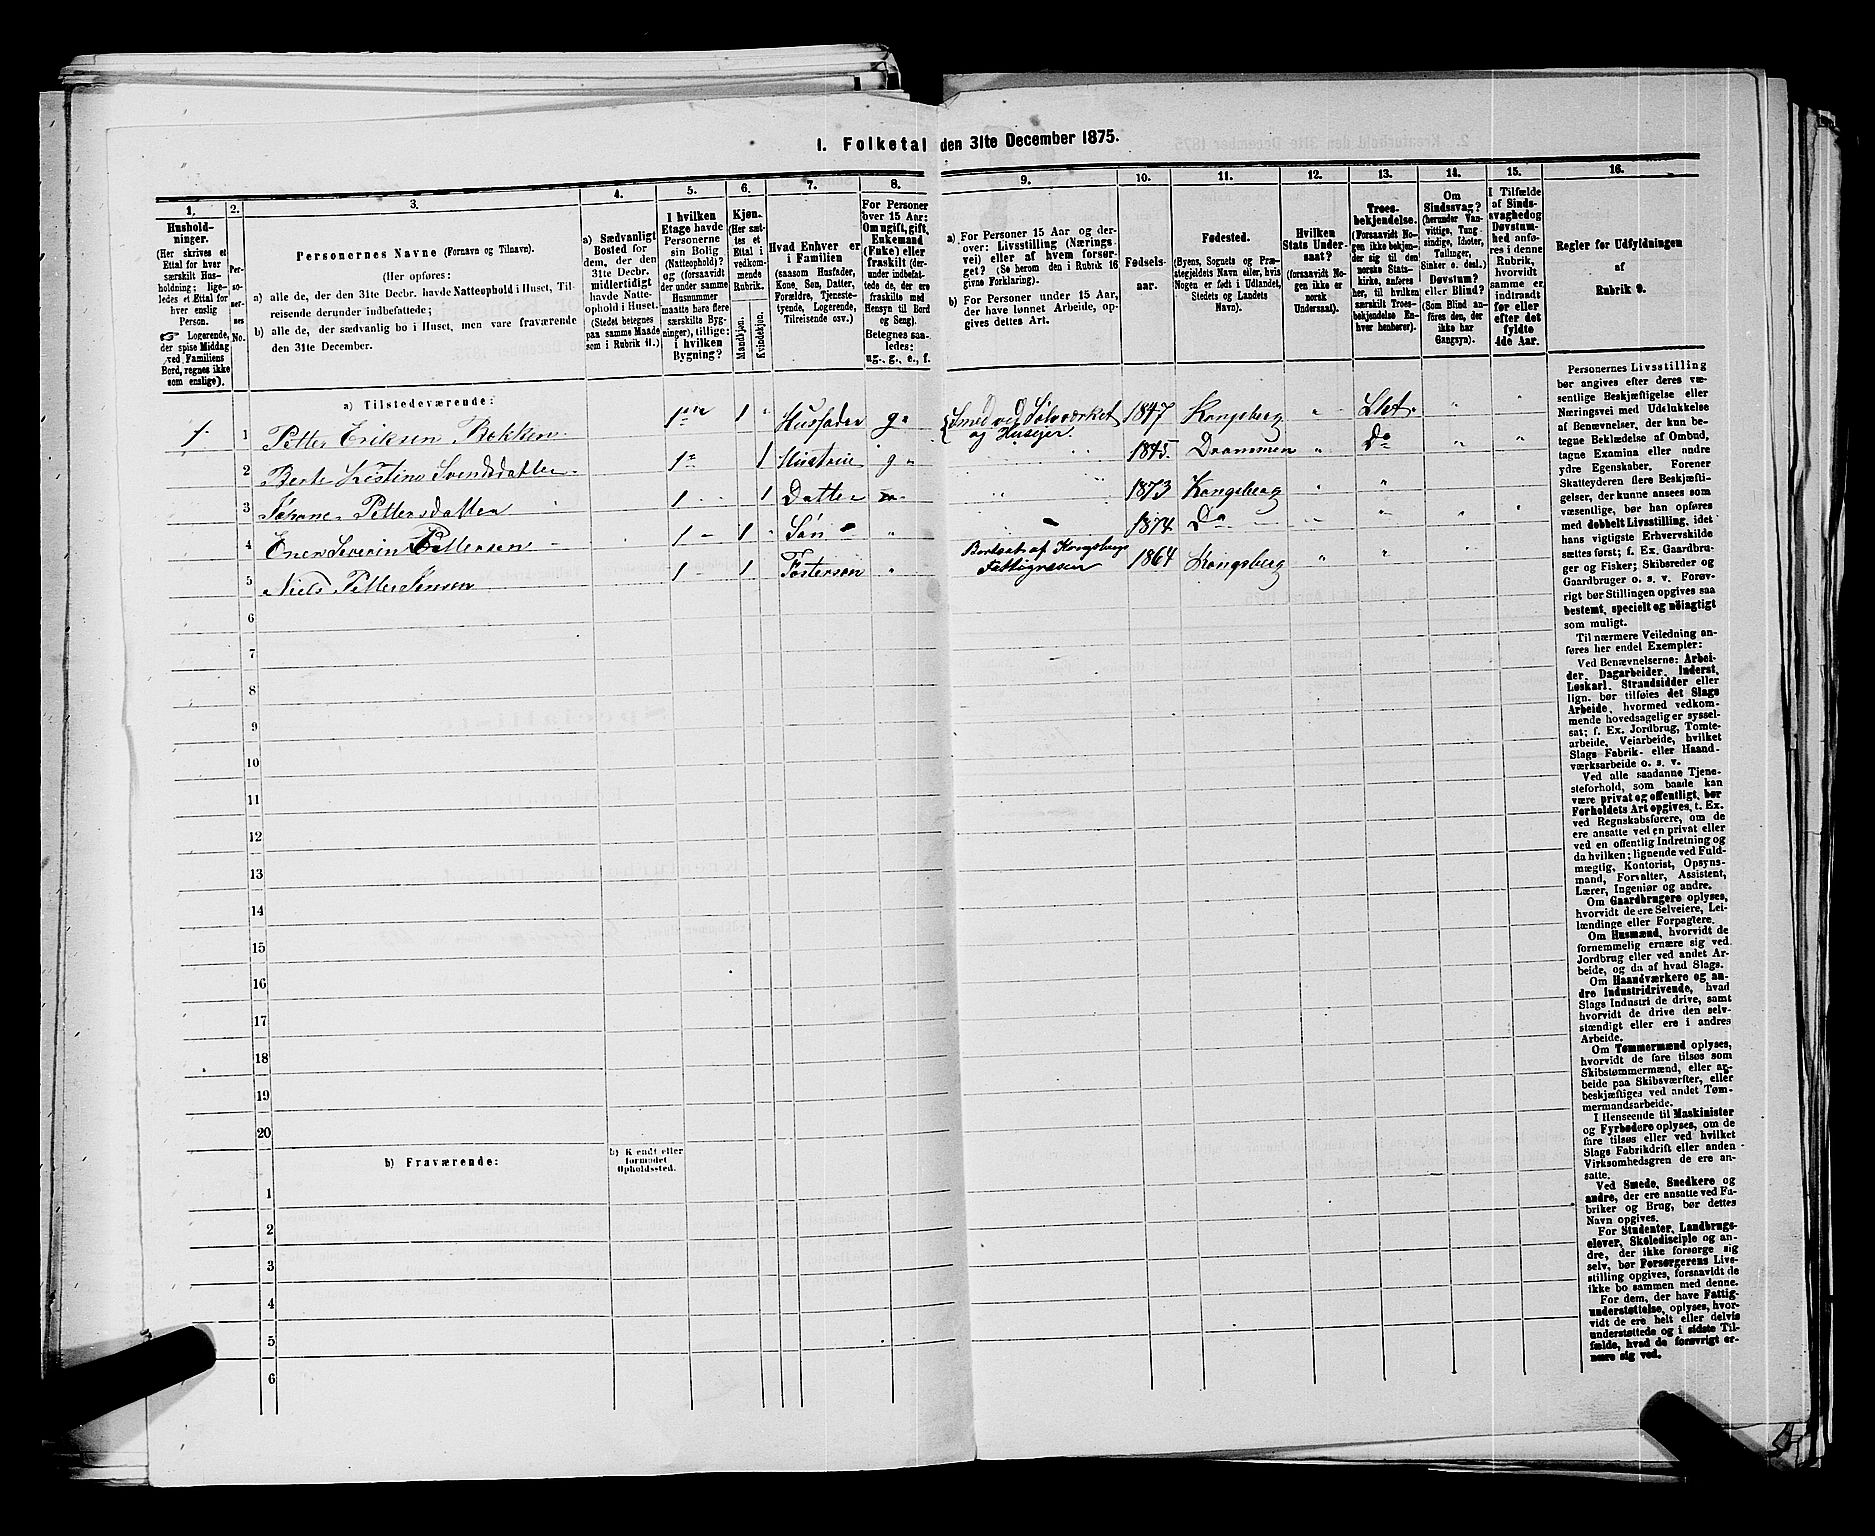 1. Folketal den 31te December 1875.
1.
2.
3.
4.
5.
6.
7.
8.
9.
10.
11.
12.
13.
14.
15.
16.
Hushold-
ninger.
(Her skrives et
Ettal for hver
særskilt Hus-
holdning; lige-
ledes et Ettal for
hver enslig
Person.
☞ Logerende,
der spise Middag
ved Familiens
Bord, regnes ikke
som enslige).
Per-
so-
ner-
nes
No.
Personernes Navne (Fornavn og Tilnavn).
(Her opføres:
a) alle de, der den 31te Decbr. havde Natteophold i Huset, Til-
reisende derunder indbefattede;
b) alle de, der sædvanlig bo i Huset, men vare fraværende
den 31te December.
a) Sædvanligt
Bosted for
dem, der den
31te Decbr.
midlertidigt
havde Natte-
ophold i Huset.
(Stedet betegnes
paa samme Maade
som i Rubrik 11.)
I hvilken
Etage havde
Personerne
sin Bolig
(Natteophold)?
og (forsaavidt
der under samme
Husnummer
maatte høre flere
særskilte Byg-
ninger), tillige:
i hvilken
Bygning?
Kjøn.
(Her sæt-
tes et
Ettal i
vedkom-
mende
Rubrik.
Mandkjøn.
Kvindekjøn.
Hvad Enhver er
i Familien
(saasom Husfader,
Kone, Søn, Datter,
Forældre, Tjeneste-
tyende, Logerende,
Tilreisende osv.)
For Personer
over 15 Aar:
Om ugift, gift,
Enkemand
(Enke) eller
fraskilt (der-
under indbefat-
tede de, der ere
fraskilte med
Hensyn til Bord
og Seng).
Betegnes saa-
ledes:
ug., g., e., f.
a) For Personer 15 Aar og der-
over: Livsstilling (Nærings-
vei) eller af hvem forsør-
get? (Se herom den i Rubrik 16
givne Forklaring).
b) For Personer under 15 Aar,
der have lønnet Arbeide, op-
gives dettes Art.
Fødsels-
aar.
Fødested.
(Byens, Sognets og Præ-
stegjeldets Navn eller, hvis
Nogen er født i Udlandet,
Stedets og Landets
Navn).
Hvilken
Stats Under-
saat?
(forsaavidt No-
gen ikke er
norsk
Undersaat).
Troes-
bekjendelse.
(Forsaavidt No-
gen ikke bekjen-
der sig til den
norske Stats-
kirke, anføres
her, til hvilken
særskilt Troes-
bekjendelse En-
hver henhører).
Om
Sindssvag?
(herunder Van-
vittige, Tung-
sindige, Idioter,
Tullinger,
Sinker o. desl.)
Døvstum?
eller Blind?
(Som Blind an-
føres den, der
ikke har
Gangsyn).
I Tilfælde
af Sinds-
svaghed og
Døvstum-
hed anfø-
res i denne
Rubrik,
hvorvidt
samme er
indtraadt
før eller
efter det
fyldte
4de Aar.
Regler for Udfyldningen
af
Rubrik 9.
a) Tilstedeværende:
1. 1 Petter Eriksen Bekken 1ste 1 " Husfader g " Smed ved Sølvværket 1847 Kongsberg " Stet. " "
og Huseier.
2 Berte Kristine Svendsdatter 1" 1 Hustrue g " 1845 Drammen " Do " "
3 Johane Pettersdatter 1 - - 1 Datter " " 1873 Kongsberg " "
4 Ener Severin Pettersen 1 - 1 " Søn - " - 1874 Do " " " "
5 Niels Petter Jensen 1 - 1 Fostersøn " Bortsat af Kongsbergs 1864 Kongsberg " " "
Fattigvæsen
6
7
8
9
10
11
12
13
14
15
16
17
18
19
20
b) Fraværende:
b) Kjendt eller
formodet
Opholdssted.
1
2
3
4
5
6
Personernes Livsstilling
bør angives efter deres væ-
sentlige Beskjæftigelse eller
Næringsvei med Udelukkelse
af Benævnelser, der kun be-
tegne Beklædelse af Ombud,
tagne Examina eller andre
ydre Egenskaber. Forener
Skatteyderen flere Beskjæfti-
gelser, der kunne ansees som
væsentlige, bør han opføres
med dobbelt Livsstilling, idet
hans vigtigste Erhvervskilde
sættes først; f. Ex. Gaardbru-
ger og Fisker; Skibsreder og
Gaardbruger o. s. v. Forøv-
rigt bør Stillingen opgives saa
bestemt, specielt og nøiagtigt
som muligt.
Til nærmere Veiledning an-
føres her endel Exempler:
Ved Benævnelserne: Arbei-
der, Dagarbeider, Inderst,
Løskarl, Strandsidder eller
lign. bør tilføies det Slags
Arbeide, hvormed vedkom-
mende hovedsagelig er syssel-
sat; f. Ex. Jordbrug, Tomte-
arbeide, Veiarbeide, hvilket
Slags Fabrik- eller Haand-
værksarbeide o. s. v.
Ved alle saadanne Tjene-
steforhold, som baade kan
være privat og offentligt, bør
Forholdets Art opgives, t. Ex.
ved Regnskabsførere, om de
ere ansatte ved en privat eller
ved en offentlig Indretning og
da hvilken; lignende ved Fuld-
mægtig, Kontorist, Opsyns-
mand, Forvalter, Assistent,
Lærer, Ingeniør og andre.
Om Gaardbrugere oplyses,
hvorvidt de ere Selveiere, Lei-
lændinge eller Forpagtere.
Om Husmænd, hvorvidt de
fornemmelig ernære sig ved
Jordbrug eller ved andet Ar-
beide, og da af hvad Slags.
Om Haandværkere og an-
dre Industridrivende, hvad
Slags Industri de drive, samt
hvorvidt de drive den selv-
stændigt eller ere i andres
Arbeide.
Om Tømmermænd oplyses,
hvorvidt de fare tilsøs som
Skibstømmermænd, eller ar-
beide paa Skibsværfter, eller
beskjæftiges ved andet Tøm-
mermandsarbeide.
I Henseende til Maskinister
og Fyrbødere oplyses, om de
fare tilsøs eller ved hvilket
Slags Fabrikdrift eller anden
Virksomhedsgren de ere an-
satte.
Ved Smede, Snedkere og
andre, der ere ansatte ved Fa-
briker og Brug, bør dettes
Navn opgives.
For Studenter, Landbrugs-
elever, Skoledisciple og an-
dre, der ikke forsørge sig
selv, bør Forsørgerens Livs-
stilling opgives, forsaavidt de
ikke bo sammen med denne.
For dem, der have Fattig-
understøttelse, oplyses, hvor-
vidt de ere helt eller delvis
understøttede og i sidste Til-
fælde, hvad de forøvrigt er-
nære sig ved.